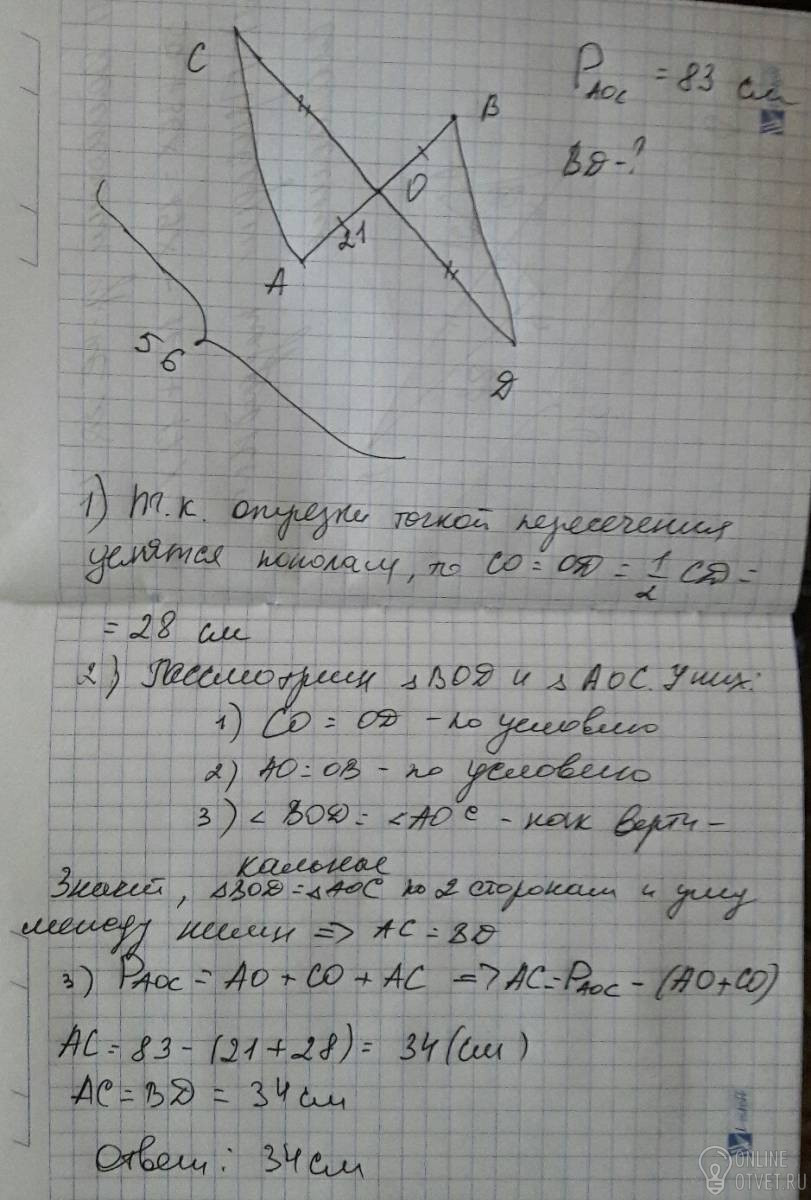 C
P_AOC = 83 см
B
BD-?
O
21
A
56
D
1) Т.к. отрезки точкой пересечения
делятся пополам, то CO = OD = 1/2 CD =
= 28 см
2) Рассмотрим △BOD и △AOC. У них:
1) CO = OD - по условию
2) AO = OB - по условию
3) ∠BOD = ∠AOC - как верти-
кальные
Значит, △BOD = △AOC по 2 сторонам и углу
между ними => AC = BD
3) P_AOC = AO + CO + AC => AC = P_AOC - (AO + CO)
AC = 83 - (21 + 28) = 34 (см)
AC = BD = 34 см
Ответ: 34 см
ONLINE
OTVET.RU